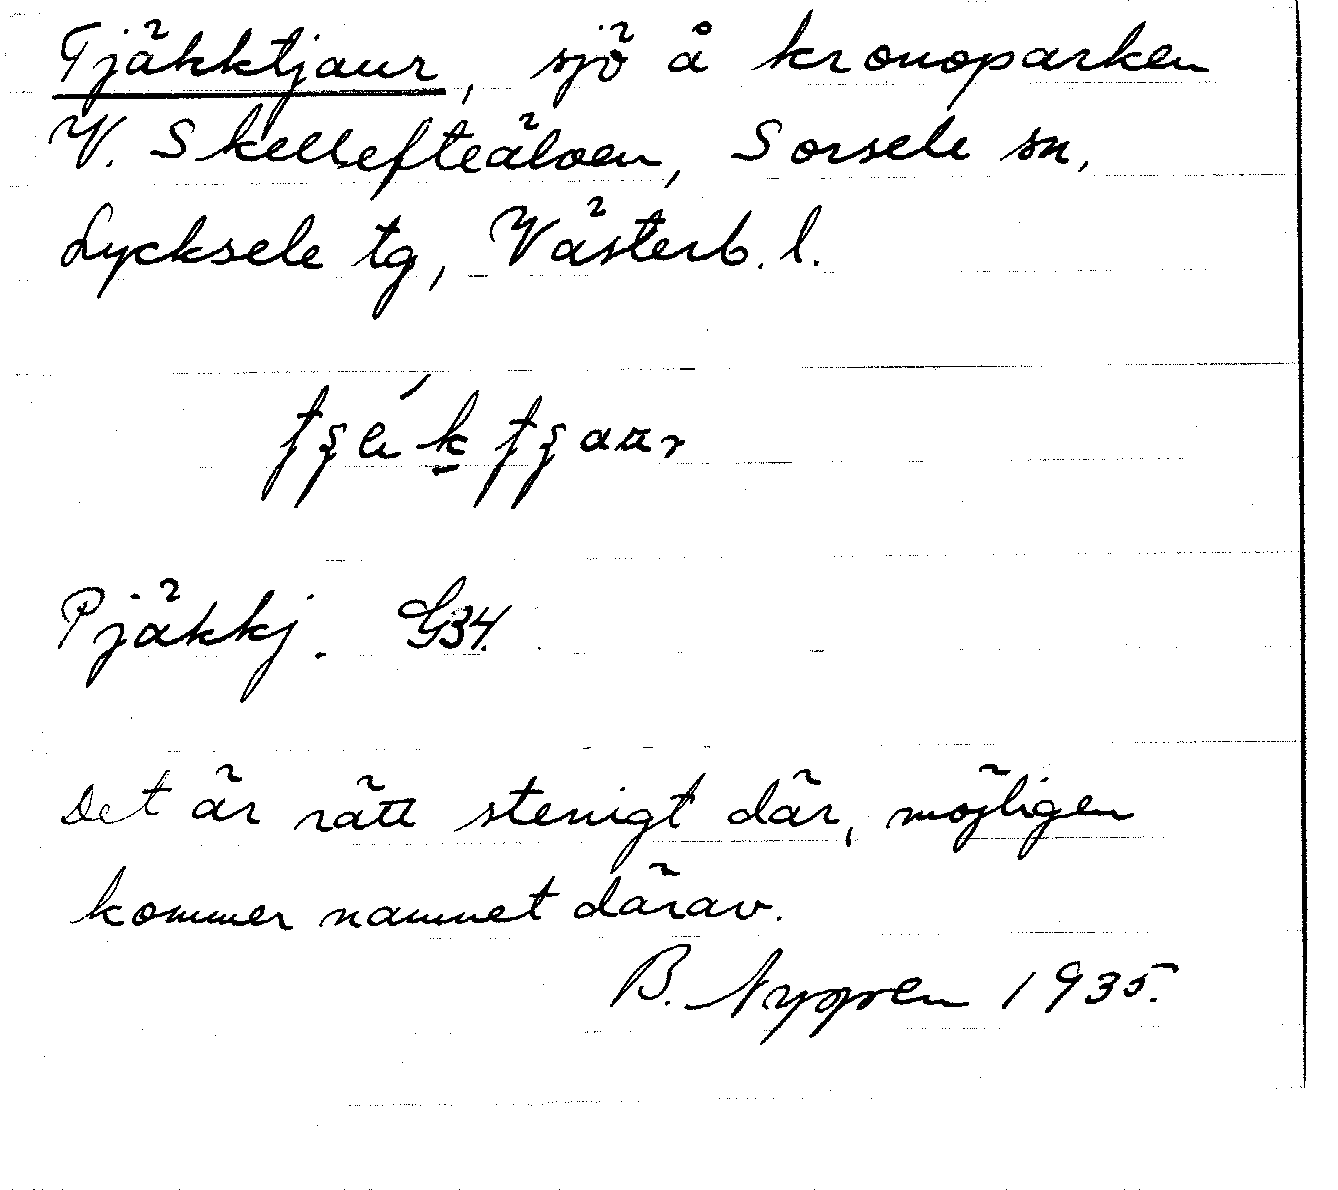 Tjäkktjaur, sjö å kronoparken
V. Skellefteälven, Sorsele sn,
Lycksele tg, Västerb. l.
Pjäkkj. G34.
Det är rätt stenigt där, möjligen
kommer namnet därav.
B. Nygren 1935.